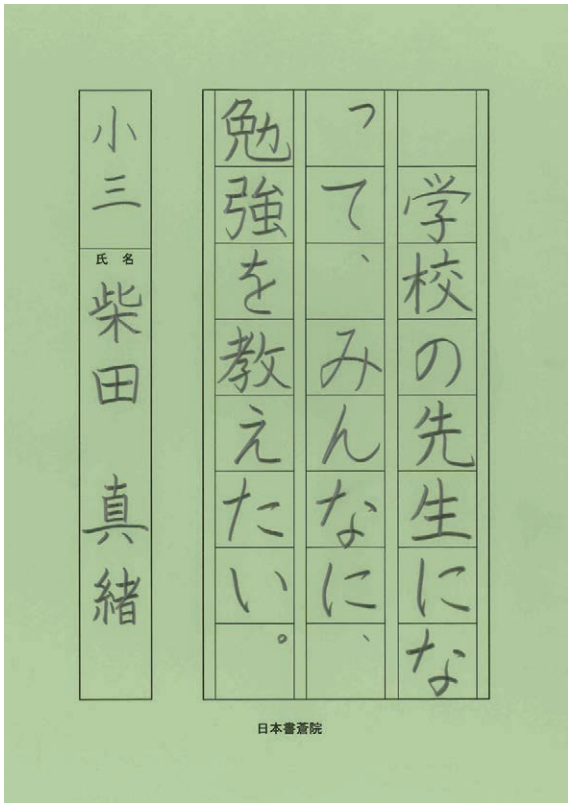 学校の先生にな
って、みんなに、
勉強を教えたい。
小三
氏名
柴田 真緒
日本書蒼院